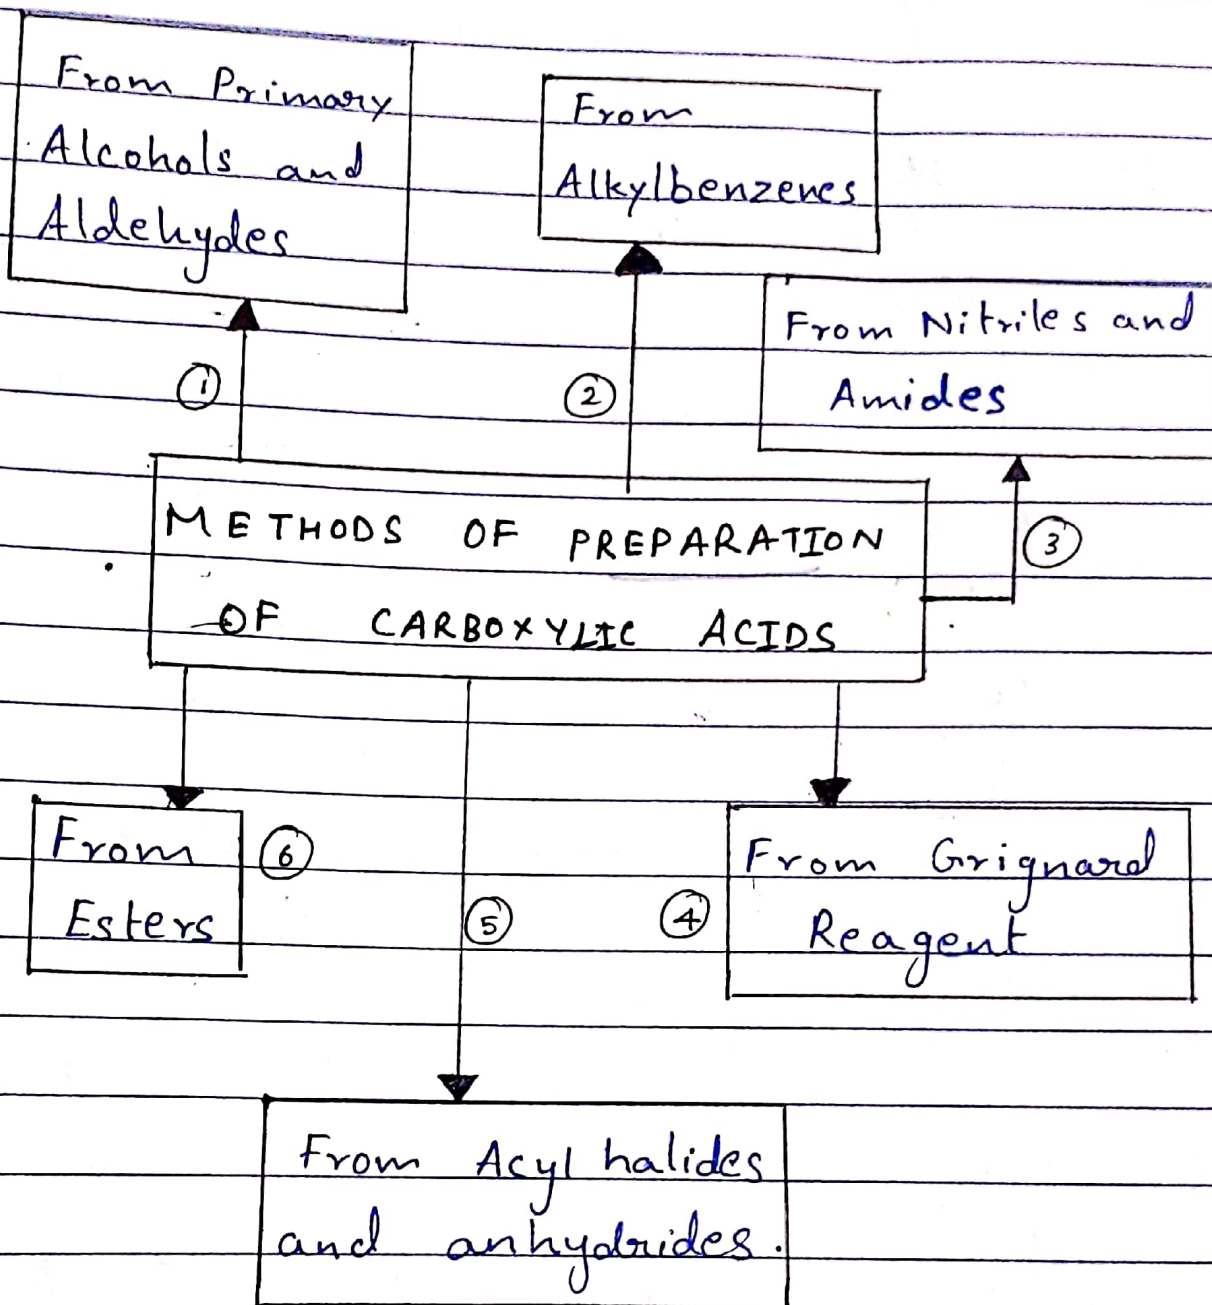 From Primary
Alcohols and
Aldehydes
From
Alkylbenzenes
From Nitriles and
Amides
1
2
METHODS OF PREPARATION
OF CARBOXYLIC ACIDS
3
From
Esters
6
5
4
From Grignard
Reagent
From Acyl halides
and anhydrides.